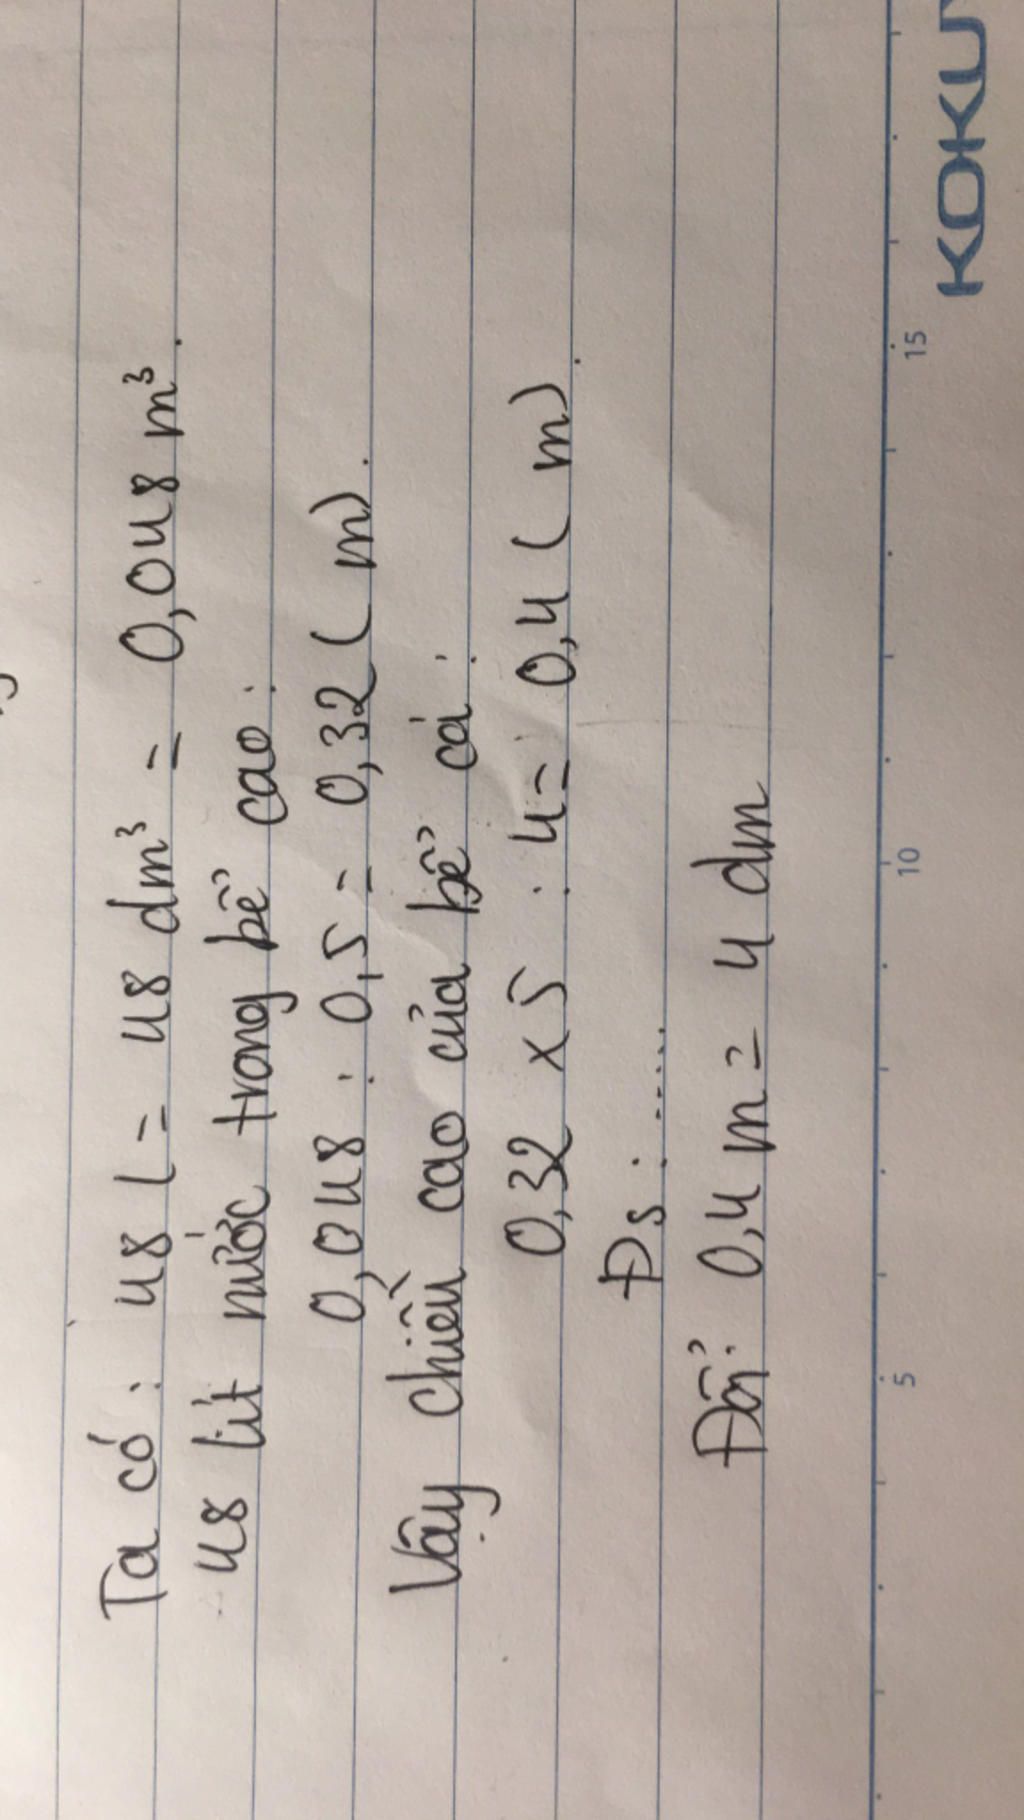 Ta có: 48 l = 48 dm³ = 0,048 m³.
48 lít nước trong bể cao:
0,048 : 0,5 = 0,32 (m).
Vậy chiều cao của bể cá:
0,32 x 5 : 4 = 0,4 (m).
Đs: .....
Đổi: 0,4 m = 4 dm
5 10 15
KOKUY